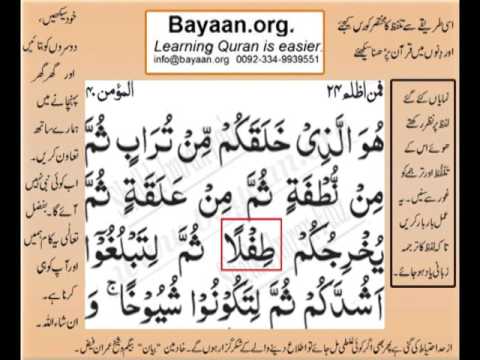 Bayaan.org.
Learning Quran is easier.
info@bayaan.org 0092-334-9939551
اسی طریقے سے تلفظ کا مختصر کورس کیجئے
اور دنوں میں قرآن پڑھنا سیکھئے
خود سیکھیں،
دوسروں کو بتائیں
اور گھر گھر
پہنچانے میں
ہمارے ساتھ
تعاون کریں۔
اب کوئی نبی نہیں
آئے گا۔ بفضل
تعالٰی یہ کام ہمیں
اور آپ کو ہی
کرنا ہے۔
ان شاء اللہ۔
فمن اظلم ٢٤
المؤمن ٤٠
هُوَ الَّذِىْ خَلَقَكُمْ مِّنْ تُرَابٍ ثُمَّ
مِنْ نُّطْفَةٍ ثُمَّ مِنْ عَلَقَةٍ ثُمَّ
يُخْرِجُكُمْ طِفْلًا ثُمَّ لِتَبْلُغُوْٓا
اَشُدَّكُمْ ثُمَّ لِتَكُوْنُوْا شُيُوْخًا ۚ وَ
نمایاں کئے گئے
لفظ پر نظر رکھتے
ھوئے اس کے
تلفّظ اور ترجمے کو
غور سے سنیں۔ یہ
عمل بار بار کریں
تاکہ لفظ کا ترجمہ
زبانی یاد ہو جائے۔
از حد احتیاط کی گئی ہے پھر بھی اگر کوئی غلطی مل جائے تو اطلاع دینے والے کے شکر گزار ہوں گے۔ خادمین "بیان" بیگم و شیخ عمران فیض۔